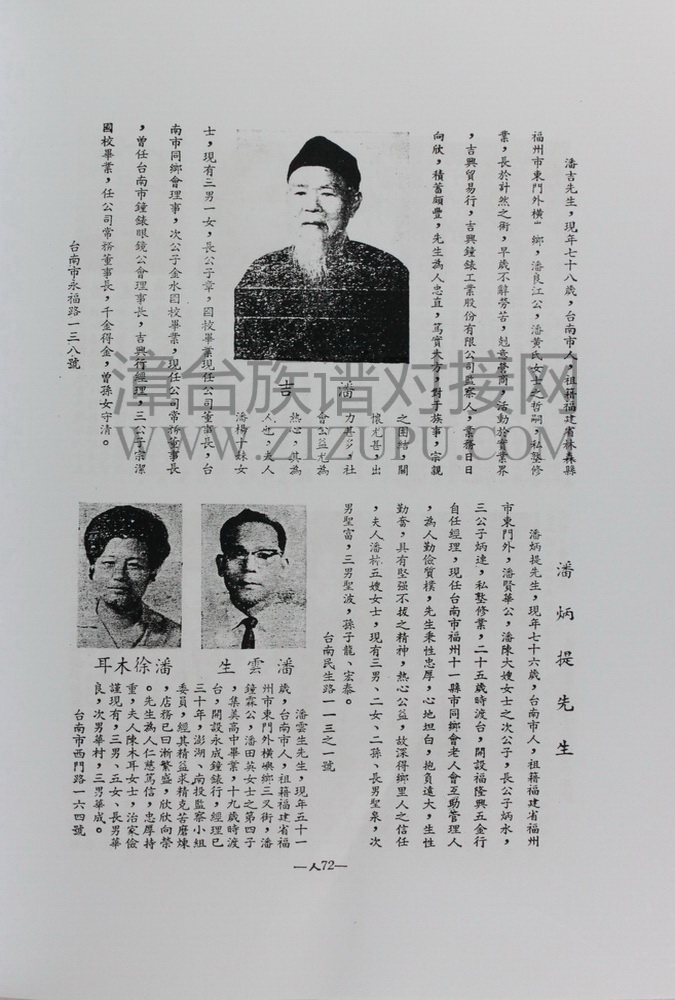 潘吉先生，現年七十八歲，台南市人，祖籍福建省林森縣
福州市東門外橫 鄉，潘良江公，潘黃氏女士之哲嗣，私塾修
業，長於計然之術，早歲不辭勞苦，尅意營商，活動於實業界
，吉興貿易行，吉興鐘錶工業股份有限公司監察人，業務日日
向欣，積蓄頗豐，先生為人忠直，篤實大方，對于族事，宗親
之困結，關
懷尤甚，出
力甚多，社
會公益尤為
熱心，其為
人也，夫人
潘楊十妹女
士，現有三男一女，長公子章，國校畢業現任公司董事長，台
南市同鄉會理事，次公子金水國校畢業，現任公司常務董事長
，曾任台南市鐘錶眼鏡公會理事長，吉興行經理，三公子宗潔
國校畢業，任公司常務董事長，千金得金，曾孫女守清。
台南市永福路一三八號
潘吉
潘炳提先生
潘炳提先生，現年七十六歲，台南市人，祖籍福建省福州
市東門外，潘賢華公，潘陳大嫂女士之次公子，長公子炳水，
三公子炳速，私塾修業，二十五歲時渡台，開設福隆興五金行
自任經理，現任台南市福州十一縣市同鄉會老人會互助管理人
，為人勤儉質樸，先生秉性忠厚，心地坦白，抱負遠大，生性
勤奮，具有堅强不拔之精神，熱心公益，故深得鄉里人之信任
，夫人潘林五嫂女士，現有三男、二女、二孫、長男聖泉，次
男聖富，三男聖波，孫子龍、宏泰。
台南民生路一一三之一號
潘雲生
潘徐木耳
潘雲生先生，現年五十一
歲，台南市人，祖籍福建省福
州市東門外橫嶼鄉三叉街，潘
鐘霖公，潘田英女士之第四子
，集美高中畢業，十九歲時渡
台，開設永成鐘錶行，經理已
三十年，澎湖、南投監察小組
委員，經其精益求精克苦磨煉
，店務已日漸繁盛，欣欣向榮
。先生為人仁慈篤信，忠厚持
重，夫人陳木耳女士，治家儉
謹現有，三男、五女、長男華
良，次男華村，三男華成。
台南市西門路一六四號
—人72—
漳台族谱对接网
WWW.ZTZUPU.COM